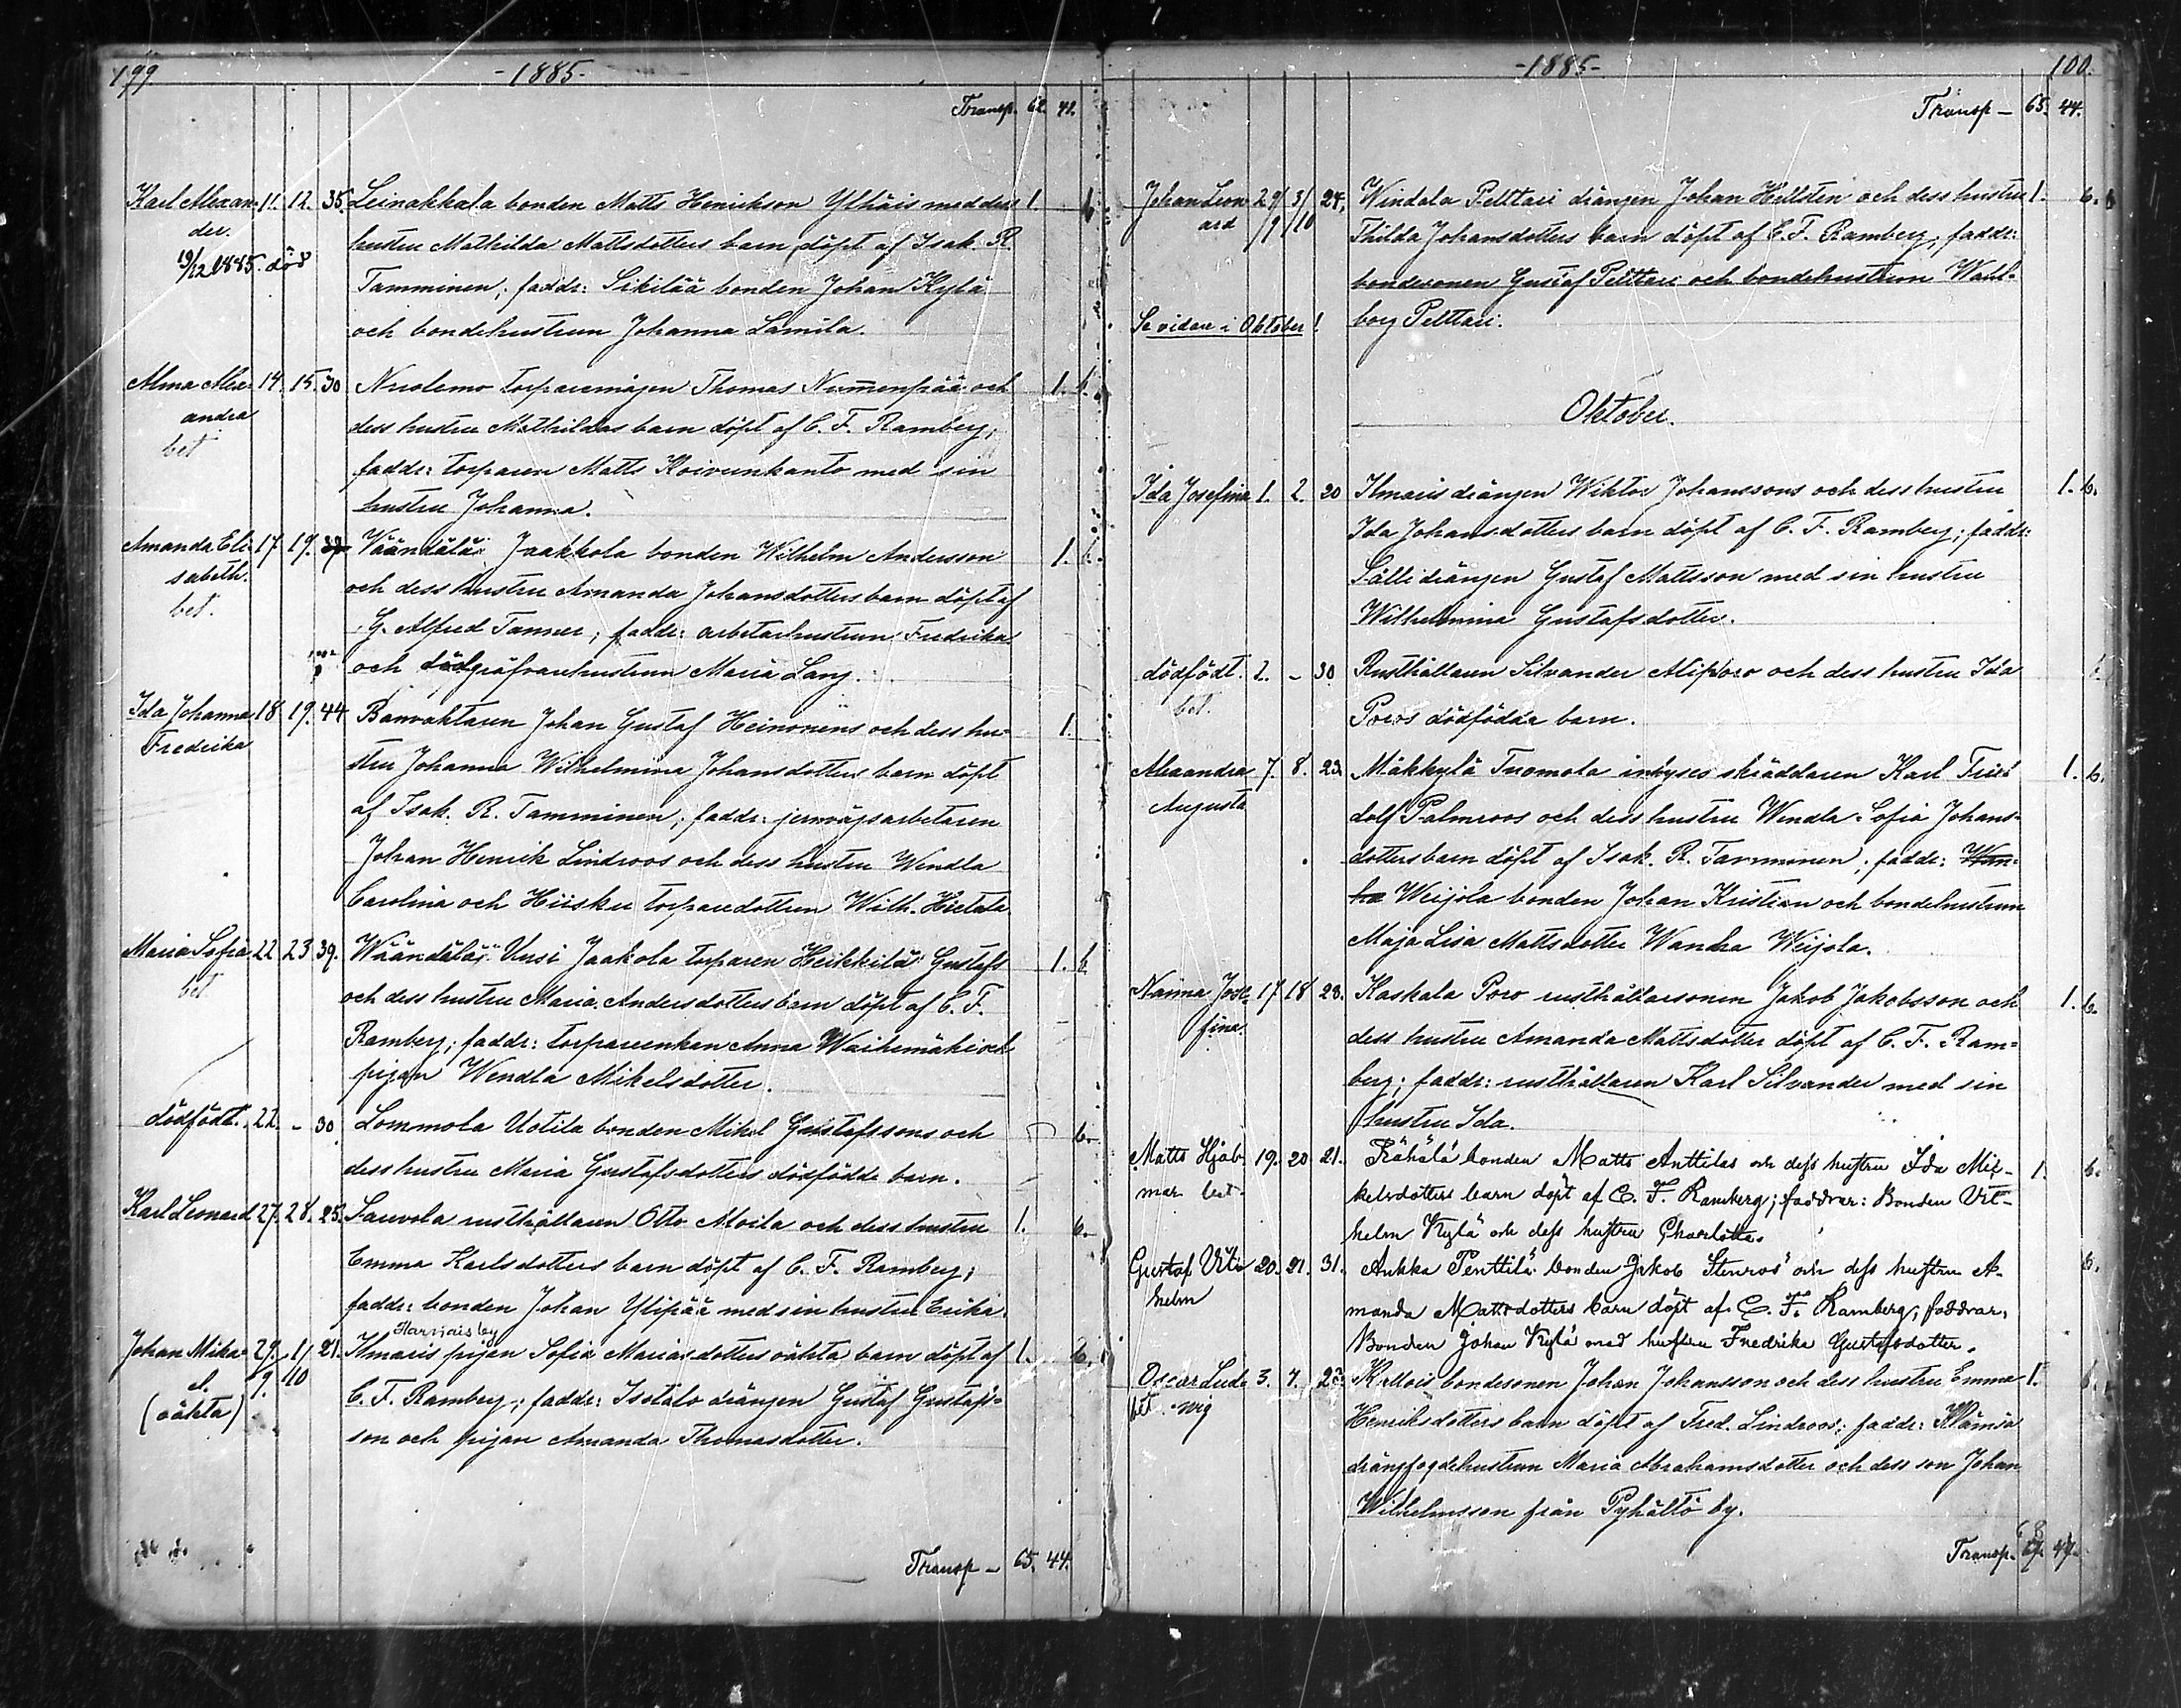 199. -1885-
Transp. 62. 42.
Karl Alexan- 11. 12. 35. Leinakkala bonden Matts Henrikson Ylhäis med dess 1. b.
der. hustru Mathilda Mattsdotters barn, döpt af Isak R.
19/12 1885. död Tamminen; faddr: Sikilää bonden Johan Kylä
och bondehustrun Johanna Lamila.
Alma Alex- 14. 15. 30 Nuolemo torparemågen Thomas Nummenpää och 1. b.
andra dess hustru Mathildas barn döpt af C. F. Ramberg;
bet faddr: torparen Matts Koivunkanto med sin
hustru Johanna.
Amanda Eli- 17 19. Väändälä: Jaakkola bonden Wilhelm Andersson 1. b.
sabeth. och dess hustru Amanda Johansdotters barn döpt af
bet. G. Alfred Tanner; faddr: arbetarhustrun Fredrika
och dödgräfvarehustrun Maria Lang.
Ida Johanna 18. 19. 44 Banvaktaren Johan Gustaf Heinonens och dess hu- 1.
Fredrika stru Johanna Wilhelmina Johansdotters barn döpt
af Isak. R. Tamminen; faddr: jernvägsarbetaren
Johan Henrik Lindroos och dess hustru Wendla
Carolina och Hiisku torparedottren Wilh. Hietala.
Maria Sofia 22 23 39. Wäändälä: Uusi Jaakola torparen Heikkilä Gustafs 1. b.
bet och dess hustru Maria Andersdotters barn döpt af C. F.
Ramberg; faddr: torpareenkan Anna Waihemäki och
pigan Wendla Mikelsdotter.
dödfödt. 22. - 30 Lommola Uotila bonden Mikel Gustafssons och b.
dess hustru Maria Gustafsdotters dödfödde barn.
Karl Leonard 27. 28. 25. Sauvola rusthållaren Otto Moila och dess hustru 1. b.
Emma Karlsdotters barn döpt af C. F. Ramberg;
faddr: bonden Johan Ylipää med sin hustru Erika.
Harviais by
Johan Mika- 29/9. 1/10 21. Ilmaris pigan Sofia Mariasdotters oäkta barn döpt af 1. b.
el. C. F. Ramberg; faddr: Isotalo drängen Gustaf Gustafs-
(oäkta) son och pigan Amanda Thomasdotter.
Transp - 65. 44.
-1885- 100.
Transp - 65. 44.
Johan Leon- 29/9 3/10 24. Windala Pelttari drängen Johan Hellsten och dess hustru 1. b.
ard Thilda Johansdotters barn döpt af C. F. Ramberg; faddr:
bondesonen Gustaf Pelttari och bondehustrun Wall-
Se vidare i Oktober! borg Pelttari.
Oktober.
Ida Josefina 1. 2. 20 Ilmaris drängen Wiktor Johanssons och dess hustru 1. b.
Ida Johansdotters barn döpt af C. F. Ramberg; faddr:
Sälli drängen Gustaf Mattsson med sin hustru
Wilhelmina Gustafsdotter.
dödfödt. 2. - 30 Rusthållaren Silvander Aliporo och dess hustru Ida
bet. Poros dödfödda barn.
Alexandra 7. 8. 23. Mäkkylä Tuomola inhyses skräddaren Karl Fri- 1. b.
Augusta dolf Palmroos och dess hustru Wendla Sofia Johans-
dotters barn döpt af Isak. R. Tamminen; faddr: Wan-
ha Weijola bonden Johan Kristian och bondehustrun
Maja Lisa Mattsdotter Wanha Weijola.
Naima Jose- 17 18 23. Kaskala Poro rusthållarsonen Jakob Jakobsson och 1. b.
fina. dess hustru Amanda Mattsdotter döpt af C. F. Ram-
berg; faddr: rusthållaren Karl Silvander med sin
hustru Ida.
Matts Hjal- 19. 20 21. Rähälä bonden Matts Anttilas och dess hustru Ida Mi- 1. b.
mar bet. kelsdotters barn döpt af C. F. Ramberg; faddrar: Bonden Vil-
helm Kylä och dess hustru Charlotta.
Gustaf Vil- 20. 21. 31. Ankka Penttilä bonden Jakob Stenroos och dess hustru A- b.
helm manda Mattsdotters barn döpt af C. F. Ramberg; faddrar,
Bonden Johan Kylä med hustru Fredrika Gustafsdotter.
Oscar Lud- 3. 4. 23 K. Mois bondesonen Johan Johansson och dess hustru Emma 1. b.
bet. wig Henriksdotters barn döpt af Fred. Lindroos; faddr: Klämsä
drängfogdehustrun Maria Abrahamsdotter och dess son Johan
Wilhelmsson från Pyhältö by.
Transp. 47.